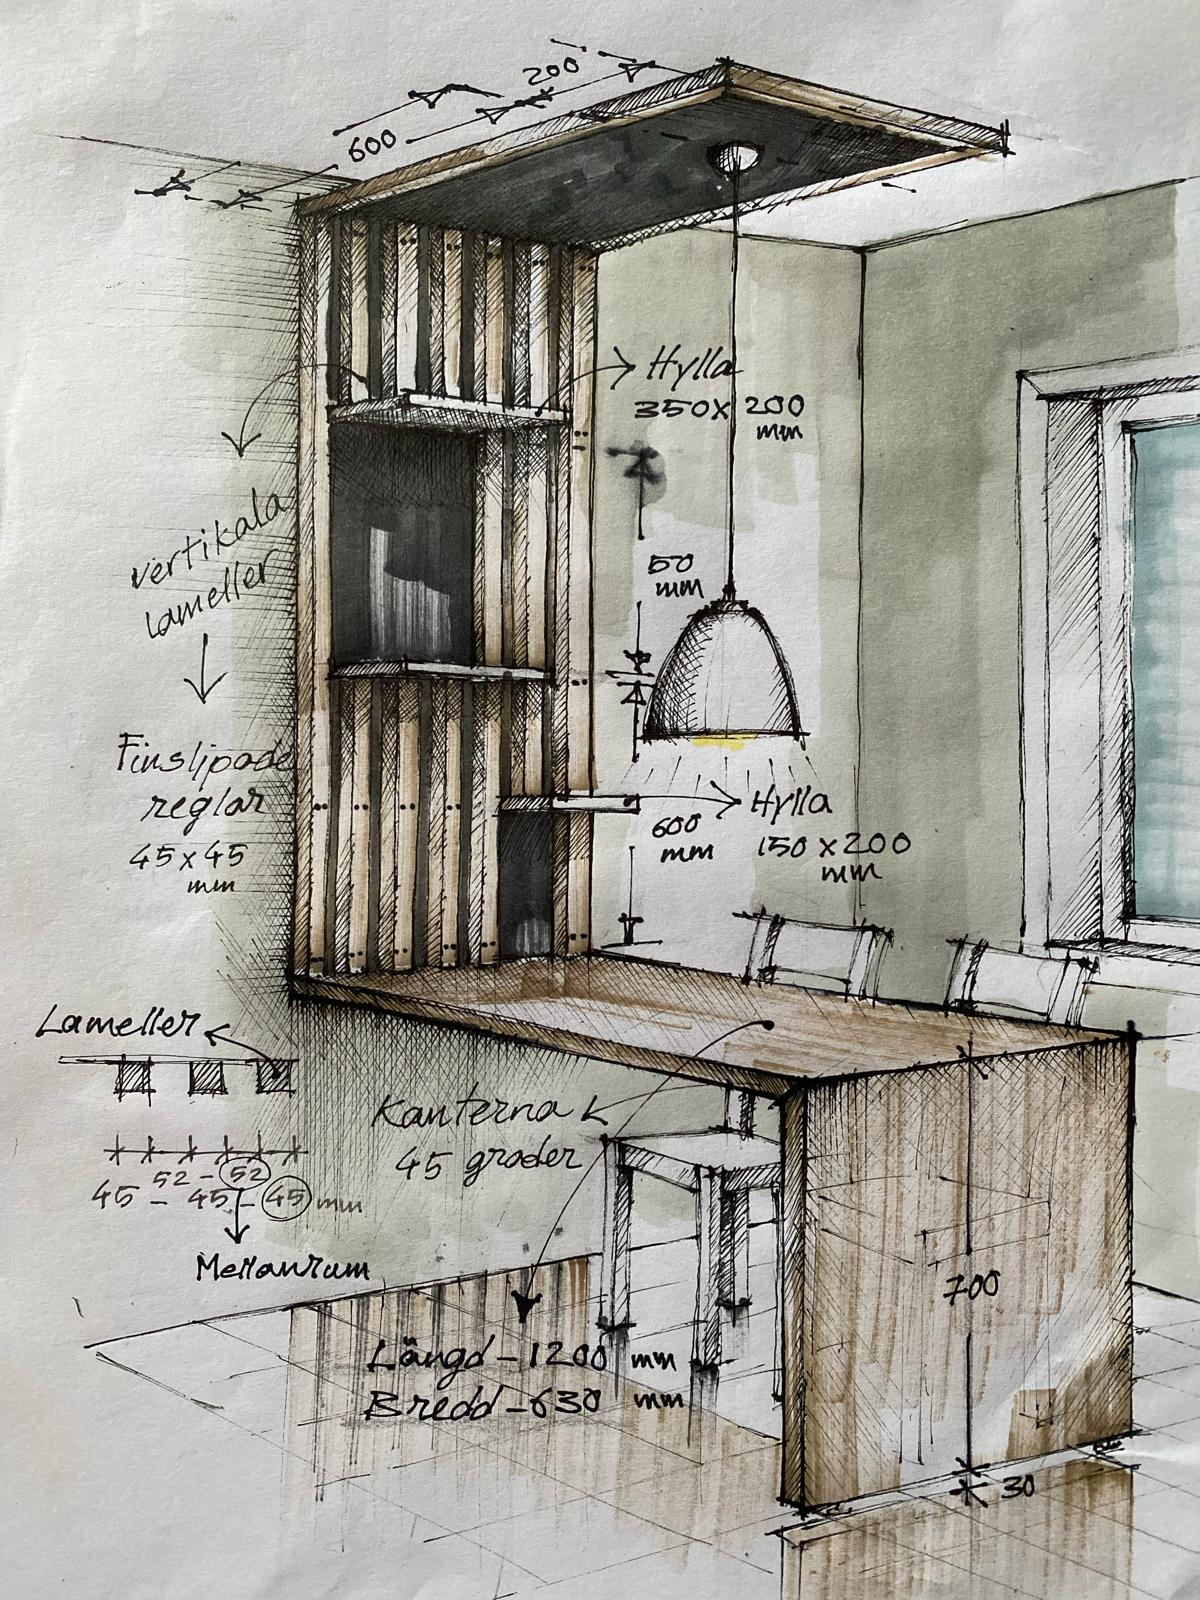 200
600
Hylla
350x200
mm
vertikala
lameller
50
mm
Finslipade
reglar
45x45
mm
Hylla
600
mm
150x200
mm
Lameller
Kanterna
45 grader
52-52
45-45-45 mm
Mellanrum
700
Längd-1200 mm
Bredd-630 mm
30